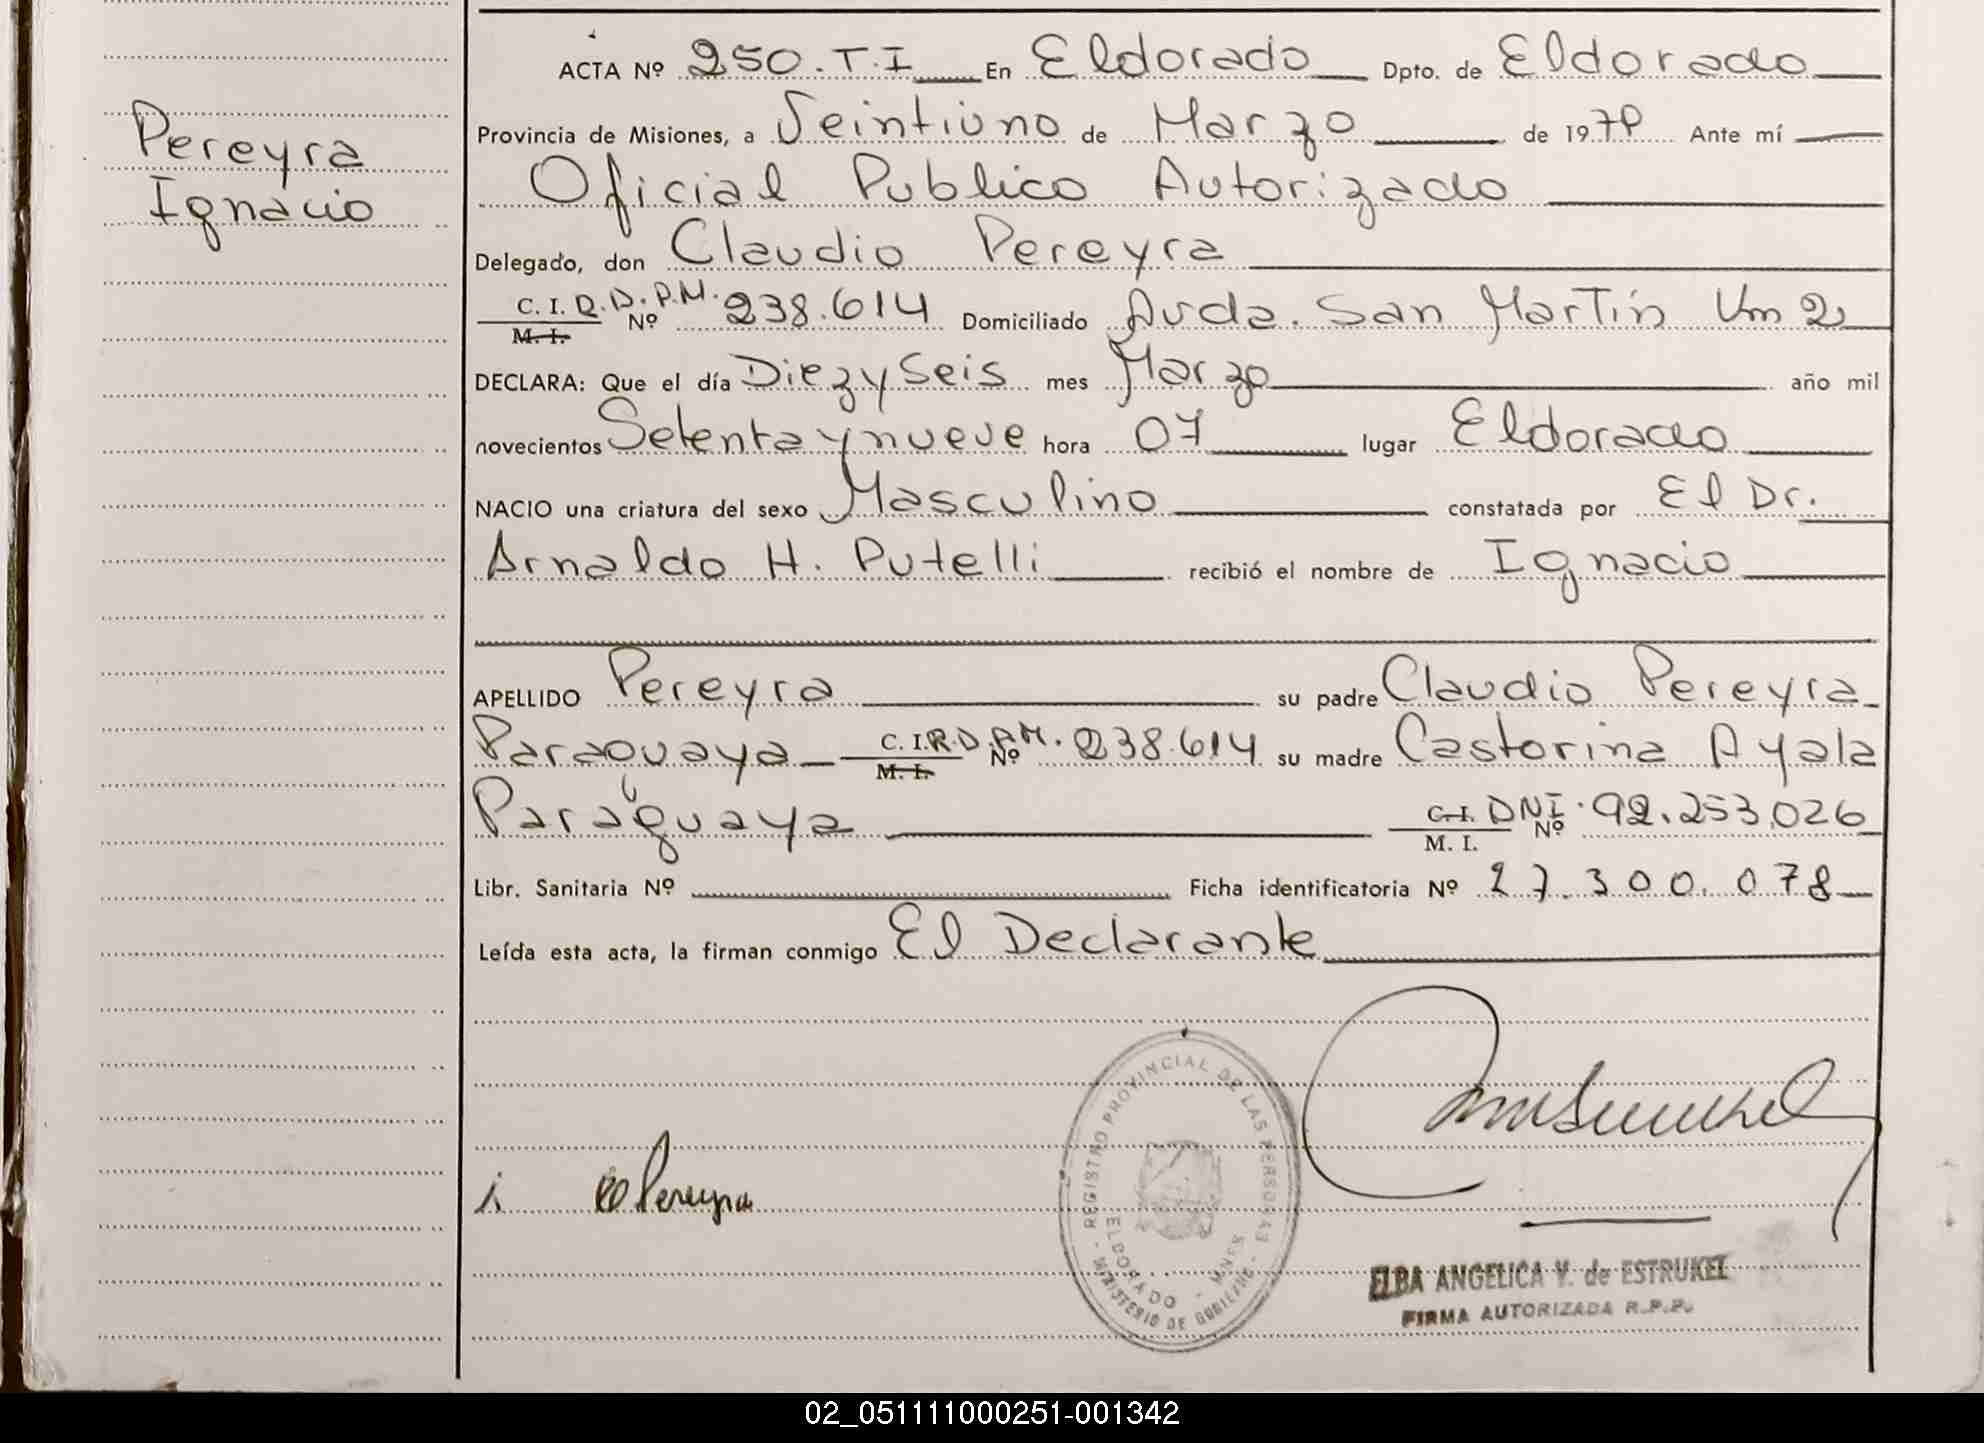 ACTA Nº 250. T. I En Eldorado Dpto. de Eldorado
Pereyra
Ignacio
Provincia de Misiones, a Veintiuno de Marzo de 1979 Ante mí
Oficial Publico Autorizado
Delegado, don Claudio Pereyra
C. I. R.D.P.M. Nº 238.614 Domiciliado Avda. San Martín Km 2
M. I.
DECLARA: Que el día Diez y Seis mes Marzo año mil
novecientos Setenta y nueve hora 07 lugar Eldorado
NACIO una criatura del sexo Masculino constatada por El Dr.
Arnaldo H. Putelli recibió el nombre de Ignacio
APELLIDO Pereyra su padre Claudio Pereyra
Paraguaya C. I.R.D.P.M. Nº 238.614 su madre Castorina Ayala
M. I.
Paraguaya C. I. DNI. Nº 92.253.026
M. I.
Libr. Sanitaria Nº Ficha identificatoria Nº 27.300.078
Leída esta acta, la firman conmigo El Declarante
Pereyra
REGISTRO PROVINCIAL DE LAS PERSONAS
ELDORADO - MNES.
MINISTERIO DE GOBIERNO
ELBA ANGELICA Y. de ESTRUKEL
FIRMA AUTORIZADA R.P.P.
02_051111000251-001342